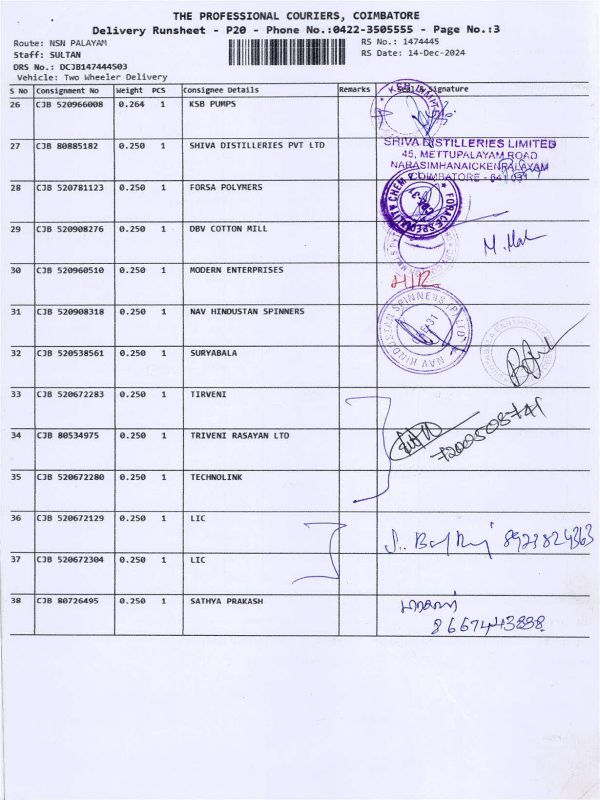 THE PROFESSIONAL COURIERS, COIMBATORE
Delivery Runsheet - P20 - Phone No.:0422-3505555 - Page No.:3
Route: NSN PALAYAM
RS No.: 1474445
Staff: SULTAN
RS Date: 14-Dec-2024
DRS No.: DCJB147444503
Vehicle: Two Wheeler Delivery
S No Consignment No Weight PCS Consignee Details Remarks Seal & Signature
26 CJB 520966008 0.264 1 KSB PUMPS
27 CJB 80885182 0.250 1 SHIVA DISTILLERIES PVT LTD
SHIVA DISTILLERIES LIMITED
45, METTUPALAYAM ROAD
NARASIMHANAICKENPALAYAM
COIMBATORE - 641 031
28 CJB 520781123 0.250 1 FORSA POLYMERS
29 CJB 520908276 0.250 1 DBV COTTON MILL
30 CJB 520960510 1 0.250 MODERN ENTERPRISES
31 CJB 520908318 0.250 1 NAV HINDUSTAN SPINNERS
NAV HINDUSTAN SPINNERS
32 CJB 520538561 0.250 1 SURYABALA
33 CJB 520672283 0.250 1 TIRVENI
34 CJB 80534975 0.250 1 TRIVENI RASAYAN LTD
35 CJB 520672280 0.250 1 TECHNOLINK
36 CJB 520672129 0.250 1 LIC
8923824363
37 CJB 520672304 0.250 1 LIC
38 CJB 80726495 0.250 1 SATHYA PRAKASH
8667443888